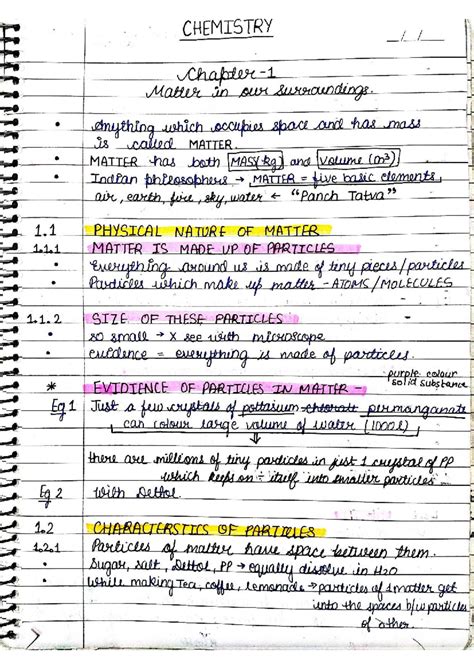 CHEMISTRY
_/_/_
Chapter-1
Matter in our surroundings.
• Anything which occupies space and has mass
is called MATTER.
• MATTER has both MASS(kg) and volume (m³)
• Indian philosophers → MATTER = five basic elements
air, earth, fire, sky, water ← "Panch Tatva"
1.1 PHYSICAL NATURE OF MATTER
1.1.1 MATTER IS MADE UP OF PARTICLES
• Everything around us is made of tiny pieces/particles
• Particles which make up matter - ATOMS/MOLECULES
1.1.2 SIZE OF THESE PARTICLES
• so small → X see with microscope
• evidence = everything is made of particles.
purple colour
solid substance
* EVIDIENCE OF PARTICLES IN MATTER -
Eg 1 Just a few crystals of pottasium chloratt permanganate
can colour large volume of water (1000l)
there are millions of tiny particles in just 1 cruystal of PP
which keeps on ÷ itself into smaller particles
Eg 2 With Dettol.
1.2 CHARACTERSTICS OF PARTICLES
1.2.1 Particles of matter have space between them.
• Sugar, salt, Dettol, PP → equally dissolve in H2O
• while making Tea, coffee, lemonade → particles of 1 matter get
into the spaces b/w particles
of other.